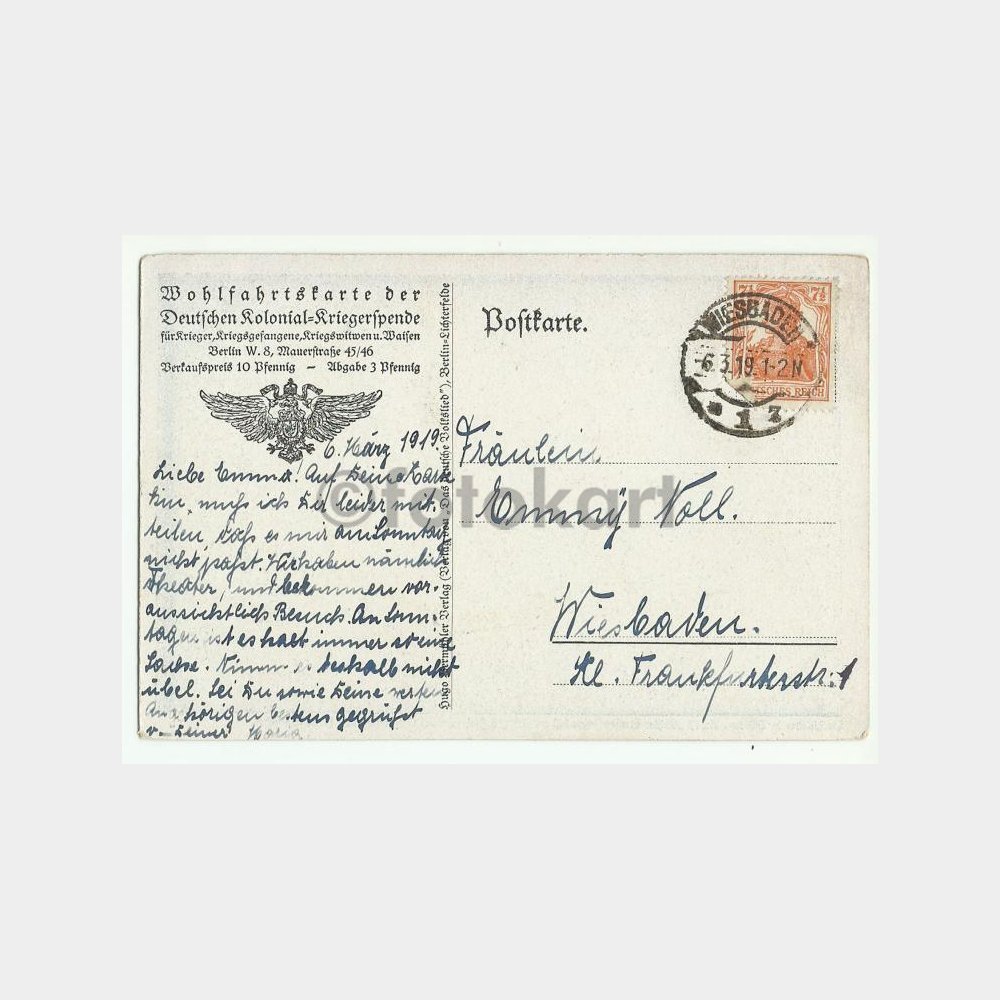 Wohlfahrtskarte der
Deutschen Kolonial=Kriegerspende
für Krieger, Kriegsgefangene, Kriegswitwen u. Waisen
Berlin W. 8, Mauerstraße 45/46
Verkaufspreis 10 Pfennig — Abgabe 3 Pfennig
6. März 1919
Liebe Emma! Auf Deine Karte
hin, muss ich Dir leider mit-
teilen, dass es mir am Sonntag
nicht passt. Wir haben nämlich
Theater, und bekommen vor-
aussichtlich Besuch. An Sonn-
tagen ist es halt immer so eine
Sache. Nimm es deshalb nicht
übel. Sei Du sowie Deine werten
Angehörigen bestens gegrüsst
v. Deiner Maria.
Verlag von „Das deutsche Volkslied"), Berlin-Lichterfelde
Postkarte.
7½ 7½
DEUTSCHES REICH
WIESBADEN
6.3.19.1-2N
* 1 z
Fräulein
Emmy Noll.
Wiesbaden.
Kl. Frankfurterstr. 1
©fotokart